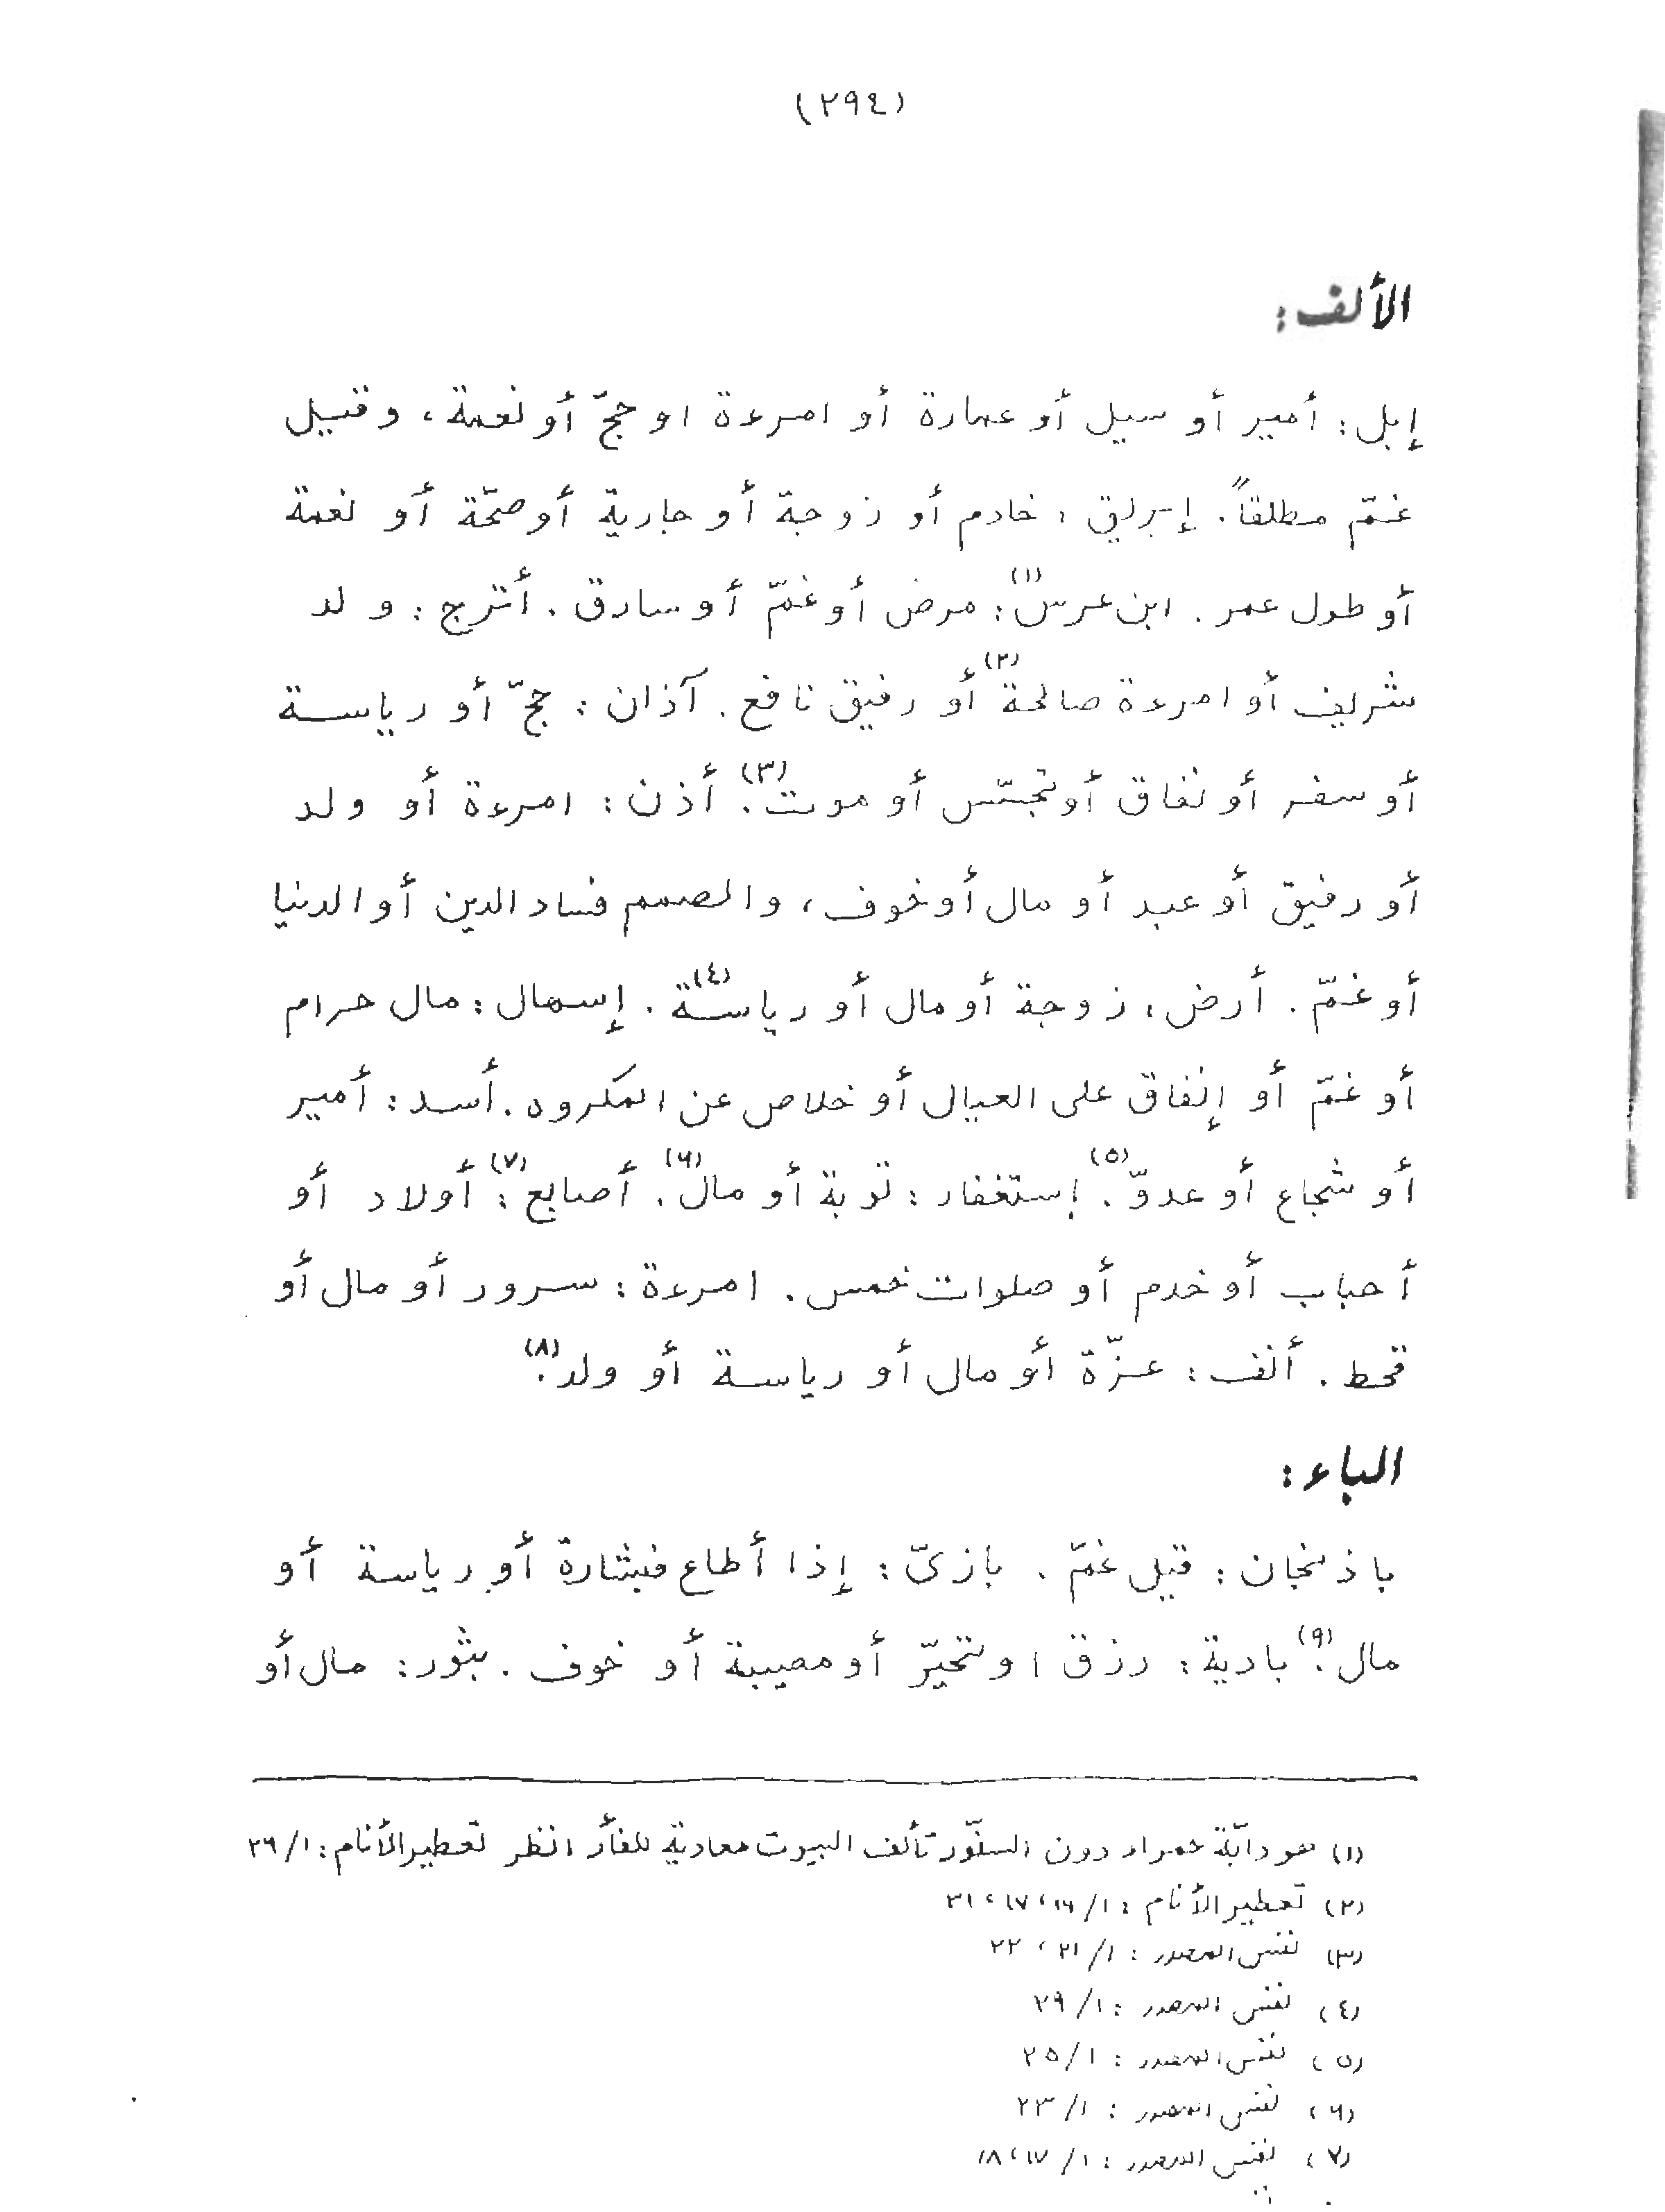 (٢٩٤)
الألف:
إبل: أمير أو سيل أو عمارة أو امرءة او حجّ أو نعمة، وقيل
غمّ مطلقاً. إبريق: خادم أو زوجة أو جارية أو صحّة أو نعمة
أو طول عمر. ابن عرس(١): مرض أو غمّ أو سارق. أترج: ولد
شريف أو امرءة صالحة(٢) أو رفيق نافع. آذان: حجّ أو رياسة
أو سفر أو نفاق أو تجسّس أو موت(٣). أذن: امرءة أو ولد
أو رفيق أو عبد أو مال أو خوف، والصمم فساد الدين أو الدنيا
أو غمّ. أرض: زوجة أو مال أو رياسة(٤). إسهال: مال حرام
أو غمّ أو إنفاق على العيال أو خلاص عن المكروه. أسد: أمير
أو شجاع أو عدوّ(٥). إستغفار: توبة أو مال(٦). أصابع(٧): أولاد أو
أحباب أو خدم أو صلوات خمس. امرءة: سرور أو مال أو
قحط. أنف: عزّة أو مال أو رياسة أو ولد(٨).
الباء:
باذنجان: قيل غمّ. بازىّ: إذا أطاع فبشارة أو رياسة أو
مال(٩). بادية: رزق او تحيّر أو مصيبة أو خوف. بثور: مال أو
(١) هو دابّة حمراء دون السنّور تألف البيوت معادية للفأر انظر تعطير الأنام: ١/٢٦
(٢) تعطير الأنام: ١/١٦، ١٧، ٣١
(٣) نفس المصدر: ١/٢١، ٢٢
(٤) نفس المصدر: ١/٢٩
(٥) نفس المصدر: ١/٢٥
(٦) نفس المصدر: ١/٢٣
(٧) نفس المصدر: ١/١٧، ١٨